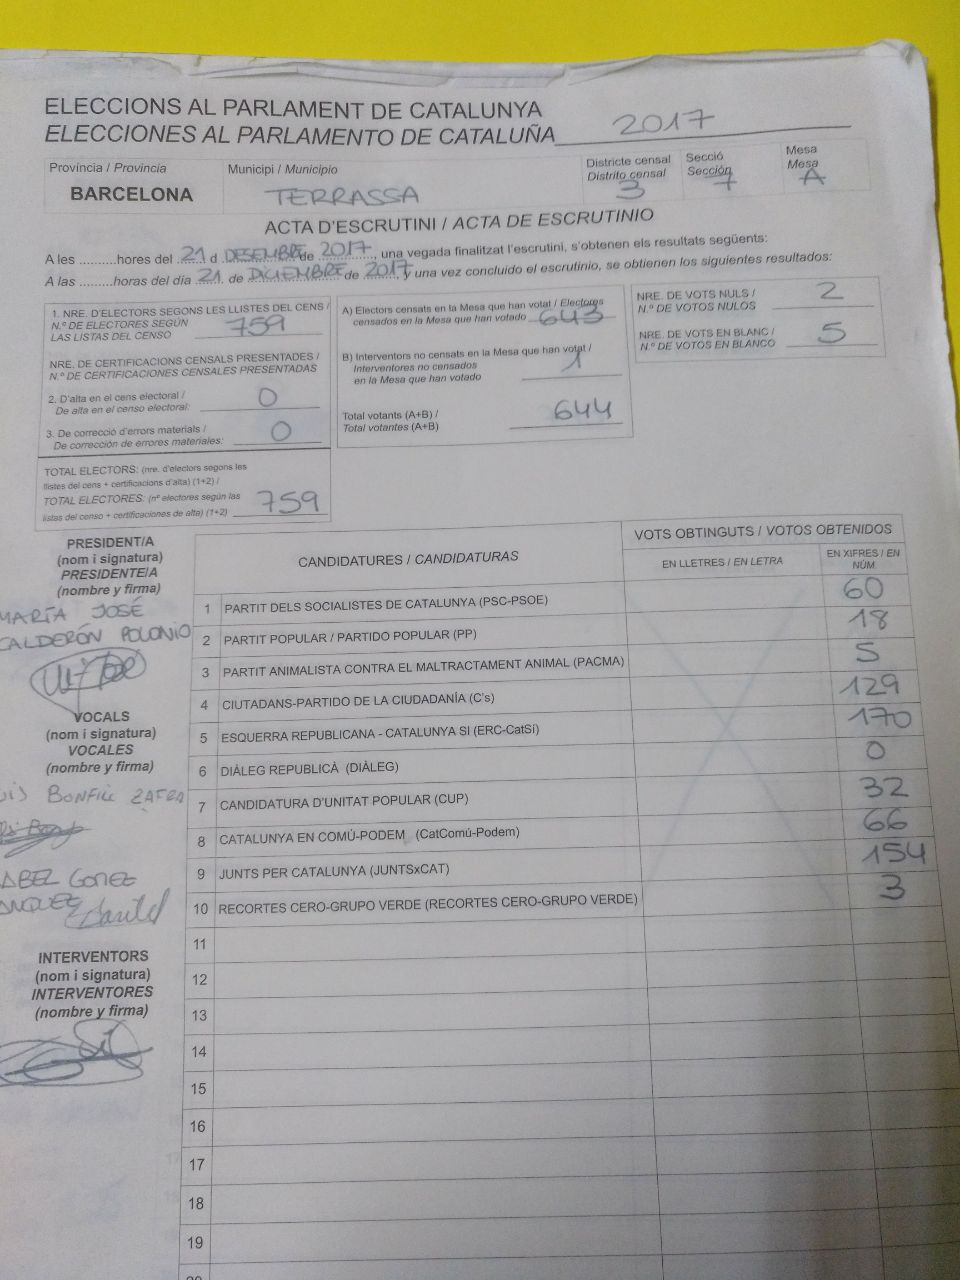 ELECCIONS AL PARLAMENT DE CATALUNYA
ELECCIONES AL PARLAMENTO DE CATALUÑA 2017
Província / Provincia
BARCELONA
Municipi / Municipio
TERRASSA
Districte censal
Distrito censal
3
Secció
Sección
7
Mesa
Mesa
A
ACTA D'ESCRUTINI / ACTA DE ESCRUTINIO
A les .........hores del 21 d DESEMBRE de 2017, una vegada finalitzat l'escrutini, s'obtenen els resultats següents:
A las .........horas del día 21 de DICIEMBRE de 2017 y una vez concluido el escrutinio, se obtienen los siguientes resultados:
1. NRE. D'ELECTORS SEGONS LES LLISTES DEL CENS /
N.º DE ELECTORES SEGÚN
LAS LISTAS DEL CENSO 759
NRE. DE CERTIFICACIONS CENSALS PRESENTADES /
N.º DE CERTIFICACIONES CENSALES PRESENTADAS
2. D'alta en el cens electoral /
De alta en el censo electoral: 0
3. De correcció d'errors materials /
De corrección de errores materiales: 0
TOTAL ELECTORS: (nre. d'electors segons les
llistes del cens + certificacions d'alta) (1+2) /
TOTAL ELECTORES: (nº electores según las
listas del censo + certificaciones de alta) (1+2) 759
A) Electors censats en la Mesa que han votat / Electores
censados en la Mesa que han votado 643
B) Interventors no censats en la Mesa que han votat /
Interventores no censados
en la Mesa que han votado 1
Total votants (A+B) /
Total votantes (A+B) 644
NRE. DE VOTS NULS /
N.º DE VOTOS NULOS 2
NRE. DE VOTS EN BLANC /
N.º DE VOTOS EN BLANCO 5
PRESIDENT/A
(nom i signatura)
PRESIDENTE/A
(nombre y firma)
MARÍA JOSÉ
CALDERÓN POLONIO
VOCALS
(nom i signatura)
VOCALES
(nombre y firma)
BONFILL ZAFRA
GOMEZ
INTERVENTORS
(nom i signatura)
INTERVENTORES
(nombre y firma)
CANDIDATURES / CANDIDATURAS
VOTS OBTINGUTS / VOTOS OBTENIDOS
EN LLETRES / EN LETRA
EN XIFRES / EN
NÚM.
1 PARTIT DELS SOCIALISTES DE CATALUNYA (PSC-PSOE) 60
2 PARTIT POPULAR / PARTIDO POPULAR (PP) 18
3 PARTIT ANIMALISTA CONTRA EL MALTRACTAMENT ANIMAL (PACMA) 5
4 CIUTADANS-PARTIDO DE LA CIUDADANÍA (C's) 129
5 ESQUERRA REPUBLICANA - CATALUNYA SI (ERC-CatSí) 170
6 DIÀLEG REPUBLICÀ (DIÀLEG) 0
7 CANDIDATURA D'UNITAT POPULAR (CUP) 32
8 CATALUNYA EN COMÚ-PODEM (CatComú-Podem) 66
9 JUNTS PER CATALUNYA (JUNTSxCAT) 154
10 RECORTES CERO-GRUPO VERDE (RECORTES CERO-GRUPO VERDE) 3
11
12
13
14
15
16
17
18
19